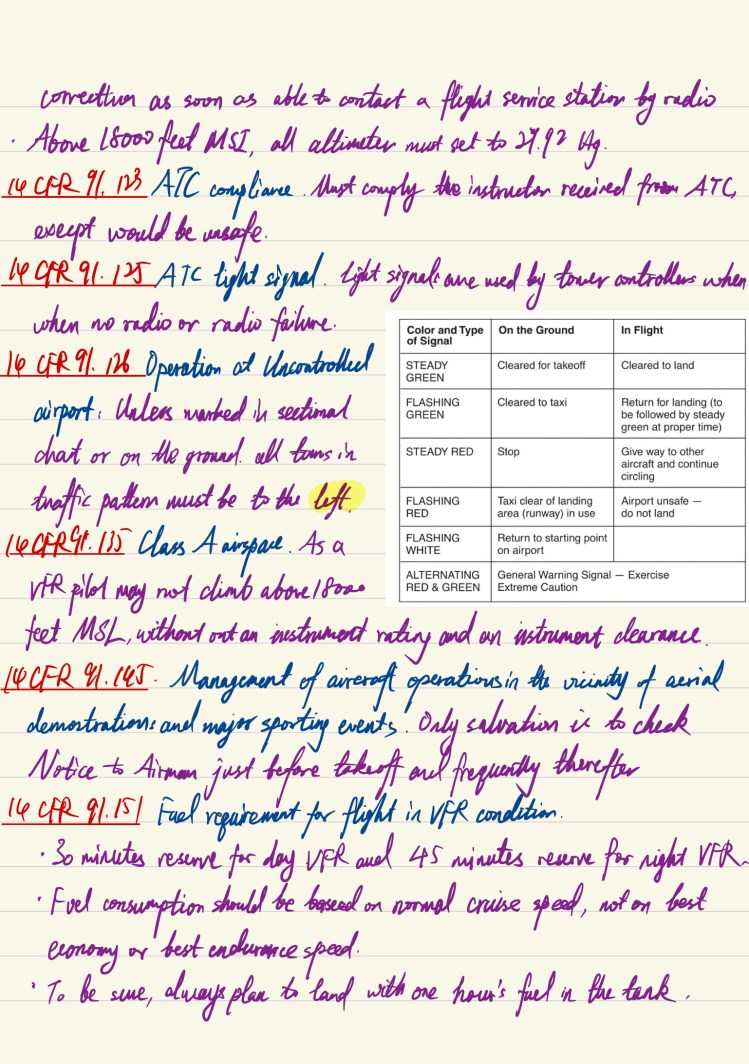 correction as soon as able to contact a flight service station by radio
· Above 18000 feet MSL, all altimeter must set to 29.92 Hg.
14 CFR 91.123 ATC compliance. Must comply the instructor received from ATC,
except would be unsafe.
14 CFR 91.125 ATC light signal. light signals are used by tower controllers when
when no radio or radio failure.
14 CFR 91.126 Operation at Uncontrolled
airport. Unless marked in sectional
chart or on the ground. all turns in
traffic pattern must be to the left.
14 CFR 91.135 Class A airspace. As a
VFR pilot may not climb above 18000
feet MSL, without out an instrument rating and an instrument clearance.
Color and Type of Signal | On the Ground | In Flight
STEADY GREEN | Cleared for takeoff | Cleared to land
FLASHING GREEN | Cleared to taxi | Return for landing (to be followed by steady green at proper time)
STEADY RED | Stop | Give way to other aircraft and continue circling
FLASHING RED | Taxi clear of landing area (runway) in use | Airport unsafe — do not land
FLASHING WHITE | Return to starting point on airport
ALTERNATING RED & GREEN | General Warning Signal — Exercise Extreme Caution
14 CFR 91.145. Management of aircraft operations in the vicinity of aerial
demostrations and major sporting events. Only salvation is to check
Notice to Airman just before takeoff and frequently therefter
14 CFR 91.151 Fuel requirement for flight in VFR condition.
· 30 minutes reserve for day VFR and 45 minutes reserve for night VFR.
· Fuel consumption should be baseed on normal cruise speed, not on best
economy or best endurance speed.
· To be sure, always plan to land with one hour's fuel in the tank.